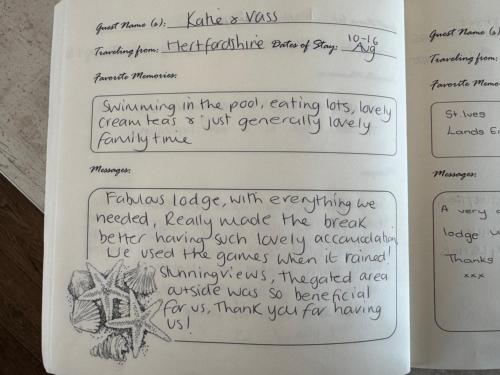 Guest Name (s): Katie & Vass
Traveling from: Hertfordshire Dates of Stay: 10-16 Aug
Favorite Memories:
Swimming in the pool, eating lots, lovely
cream teas & just generally lovely
family time
Messages:
Fabulous lodge, with everything we
needed, Really made the break
better having such lovely accomodation
We used the games when it rained!
Stunning views, the gated area
outside was so beneficial
for us, Thank you for having
us!
Guest Name (s)
Traveling from:
Favorite Memor
St. Ives
Lands E
Messages:
A very
lodge
Thanks
xxx